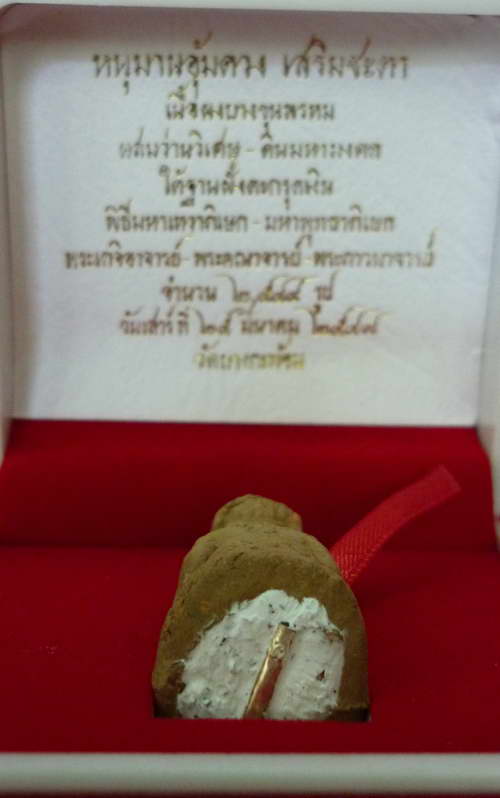 หนุมานอุ้มดวง เสริมชะตา
เนื้อผงบางขุนพรหม
ผสมว่านวิเศษ - ดินมหามงคล
ใต้ฐานฝังตะกรุดเงิน
พิธีมหาเทวาภิเษก - มหาพุทธาภิเษก
พระเกจิอาจารย์ - พระคณาจารย์ - พระภาวนาจารย์
จำนวน ๒,๕๔๔ รูป
วันเสาร์ที่ ๒๔ มีนาคม ๒๕๔๔